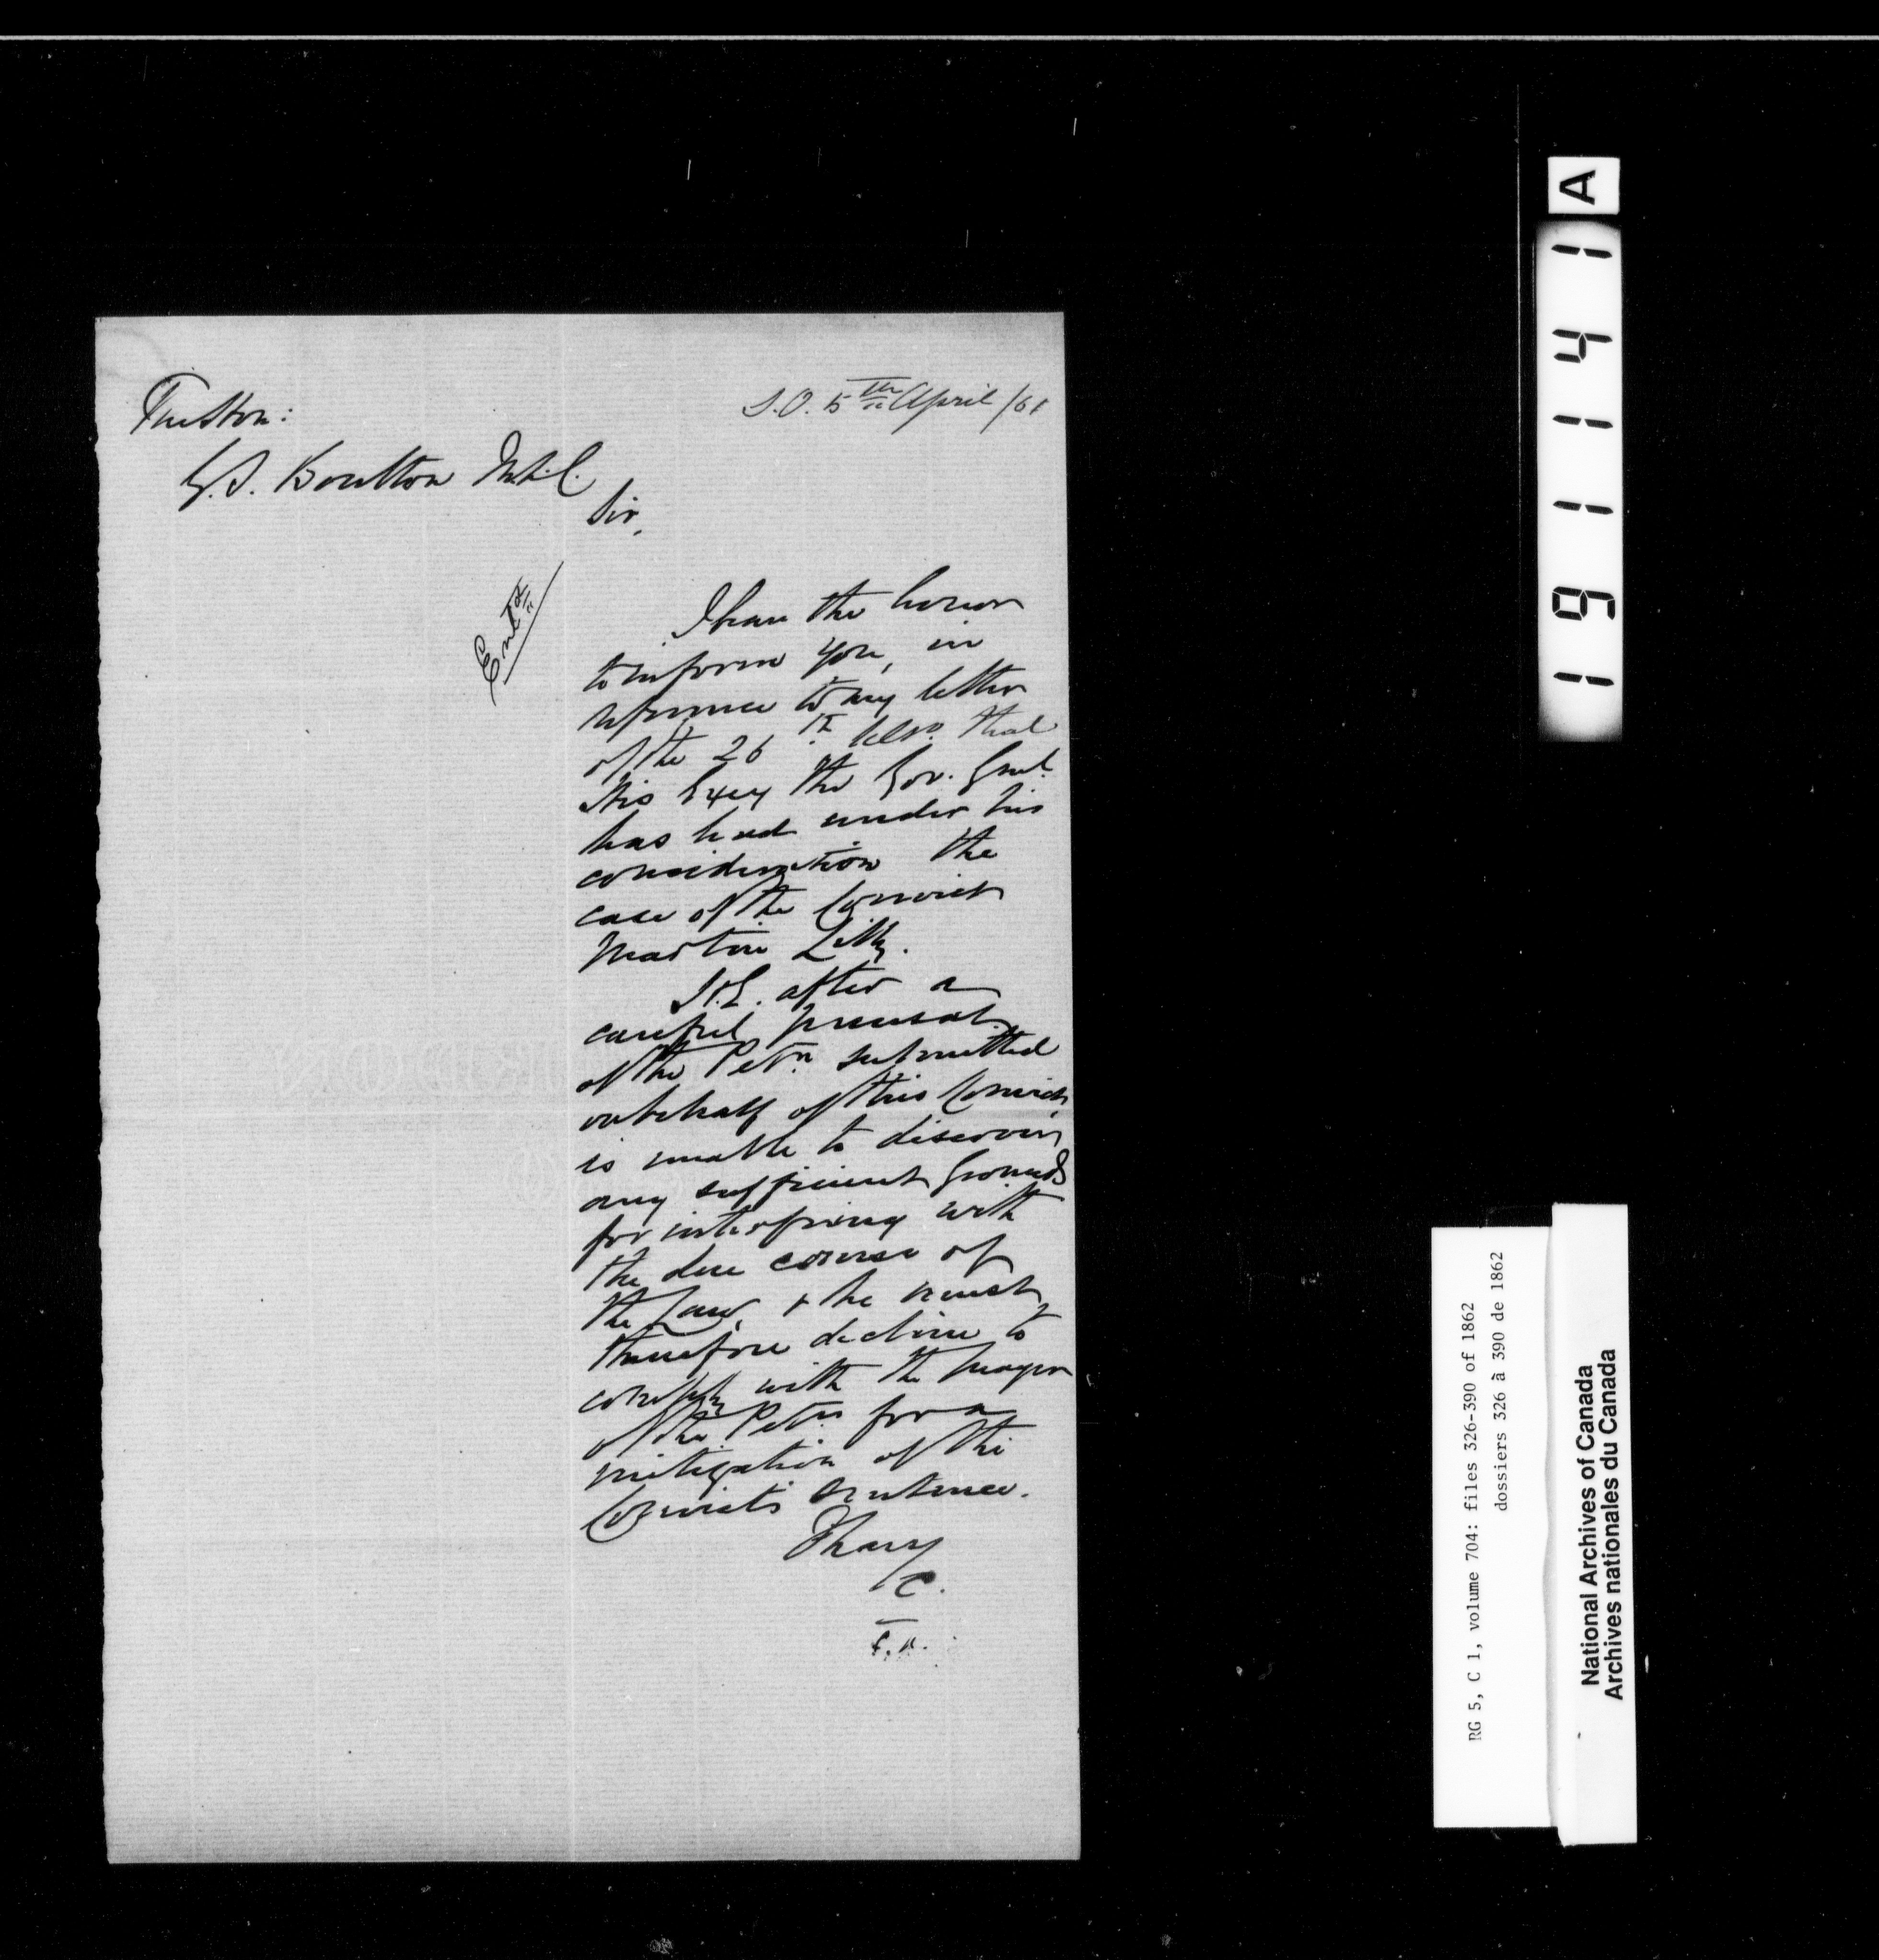 The Hon:
G. S. Boulton M.L.C.
S.O. 5th April /61
Sir,
Entd
I have the honor
to inform you, in
reference to my letter
of the 26th ulto. that
His Excy the Gov. Genl.
has had under his
consideration the
case of the Convict
Martin
H.E. after a
careful perusal
of the Petn. submitted
on behalf of this Convict
is unable to discover
any sufficient grounds
for interfering with
the due course of
the Law, & he must
therefore decline to
comply with the prayer
of the Petn. for a
mitigation of the
Convict's sentence.
I have
&c.
A
191141
RG 5, C 1, volume 704: files 326-390 of 1862
dossiers 326 à 390 de 1862
National Archives of Canada
Archives nationales du Canada